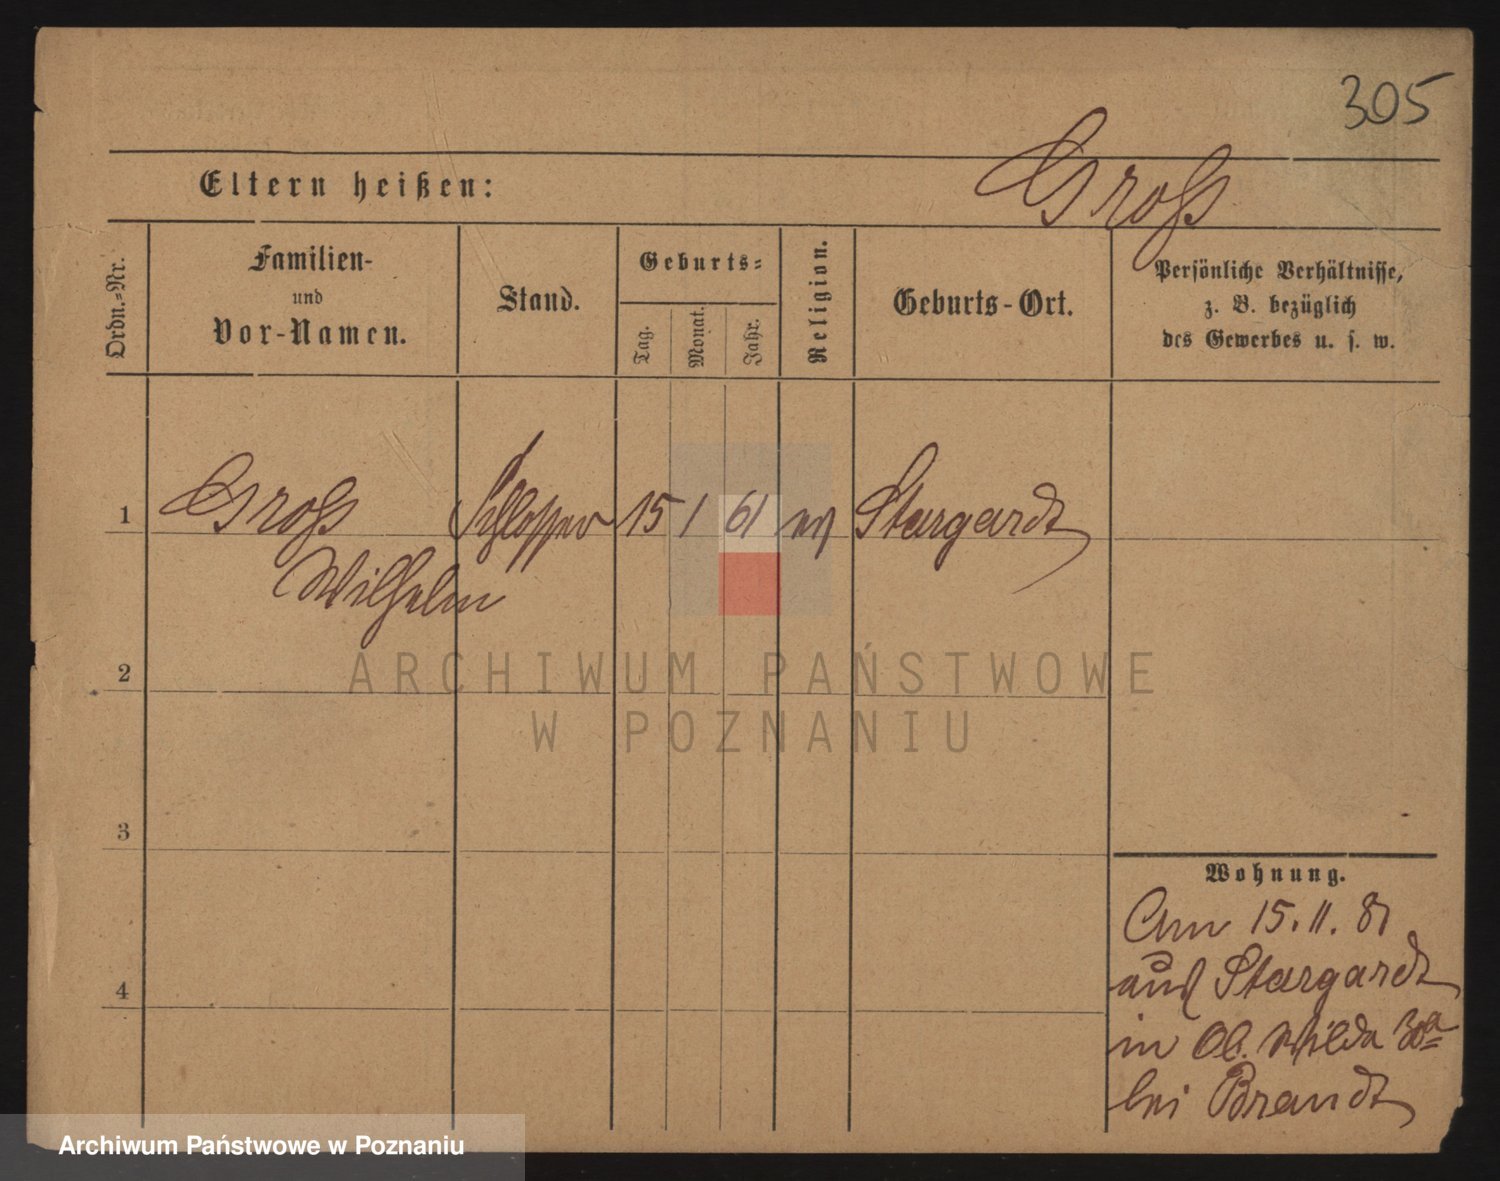 305
Eltern heißen:
Groß
Ordn.=Nr.
Familien-
und
Vor-Namen.
Stand.
Geburts=
Tag.
Monat.
Jahr.
Religion.
Geburts-Ort.
Persönliche Verhältnisse,
z. B. bezüglich
des Gewerbes u. s. w.
1
Groß
Wilhelm
Schlosser
15
1
61
ev
Stargardt
2
3
4
Wohnung.
Am 15. 11. 81
aus Stargardt
in Ob. Wilda 30a
bei Brandt
ARCHIWUM PAŃSTWOWE
W POZNANIU
Archiwum Państwowe w Poznaniu